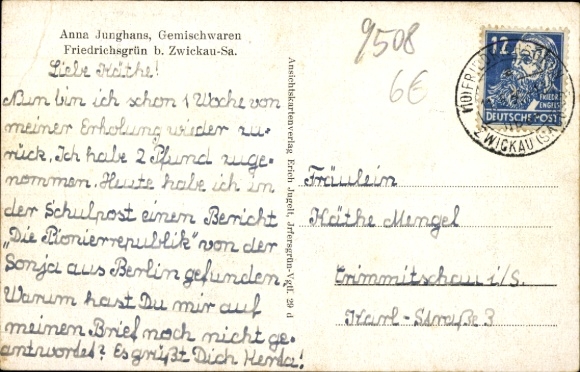 Anna Junghans, Gemischwaren
Friedrichsgrün b. Zwickau-Sa.
Liebe Käthe!
Nun bin ich schon 1 Woche von
meiner Erholung wieder zu-
rück. Ich habe 2 Pfund zuge-
nommen. Heute habe ich in
der Schulpost einen Bericht
„Die Pionierrepublik" von der
Sonja aus Berlin gefunden.
Warum hast Du mir auf
meinen Brief noch nicht ge-
antwortet? Es grüßt Dich Herta!
Ansichtskartenverlag Erich Jugelt, Irfersgrün-Vgtl. 29 d
9508
6€
12
FRIEDR.
ENGELS
DEUTSCHE POST
ZWICKAU (SA)
Fräulein
Käthe Mengel
Crimmitschau i/S.
Karl-Straße 3